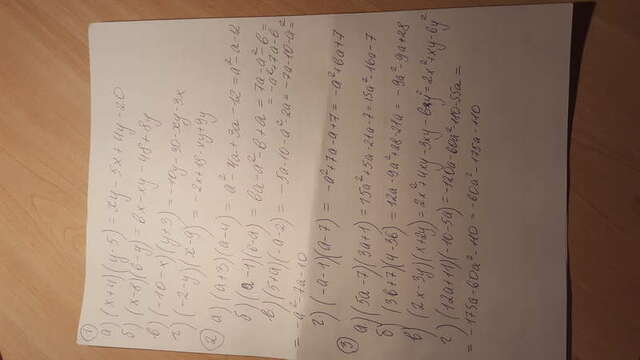 1
а) (x+4)(y-5) = xy - 5x + 4y - 20
б) (x-8)(6-y) = 6x - xy - 48 + 8y
в) (-10-x)(y+3) = -10y - 30 - xy - 3x
г) (-2-y)(x-9) = -2x + 18 - xy + 9y
2 а) (a+3)(a-4) = a² - 4a + 3a - 12 = a² - a - 12
б) (a-1)(6-a) = 6a - a² - 6 + a = 7a - a² - 6 =
= -a² + 7a - 6
в) (5+a)(-a-2) = -5a - 10 - a² - 2a = -7a - 10 - a² =
= -a² - 7a - 10
г) (-a-1)(a-7) = -a² + 7a - a + 7 = -a² + 6a + 7
3
а) (5a-7)(3a+1) = 15a² + 5a - 21a - 7 = 15a² - 16a - 7
б) (3b+7)(4-3b) = 12a - 9a² + 28 - 21a = -9a² - 9a + 28
в) (2x-3y)(x+2y) = 2x² + 4xy - 3xy - 6y² = 2x² + xy - 6y²
г) (12a+11)(-10-5a) = -120a - 60a² - 110 - 55a =
= -175a - 60a² - 110 = -60a² - 175a - 110